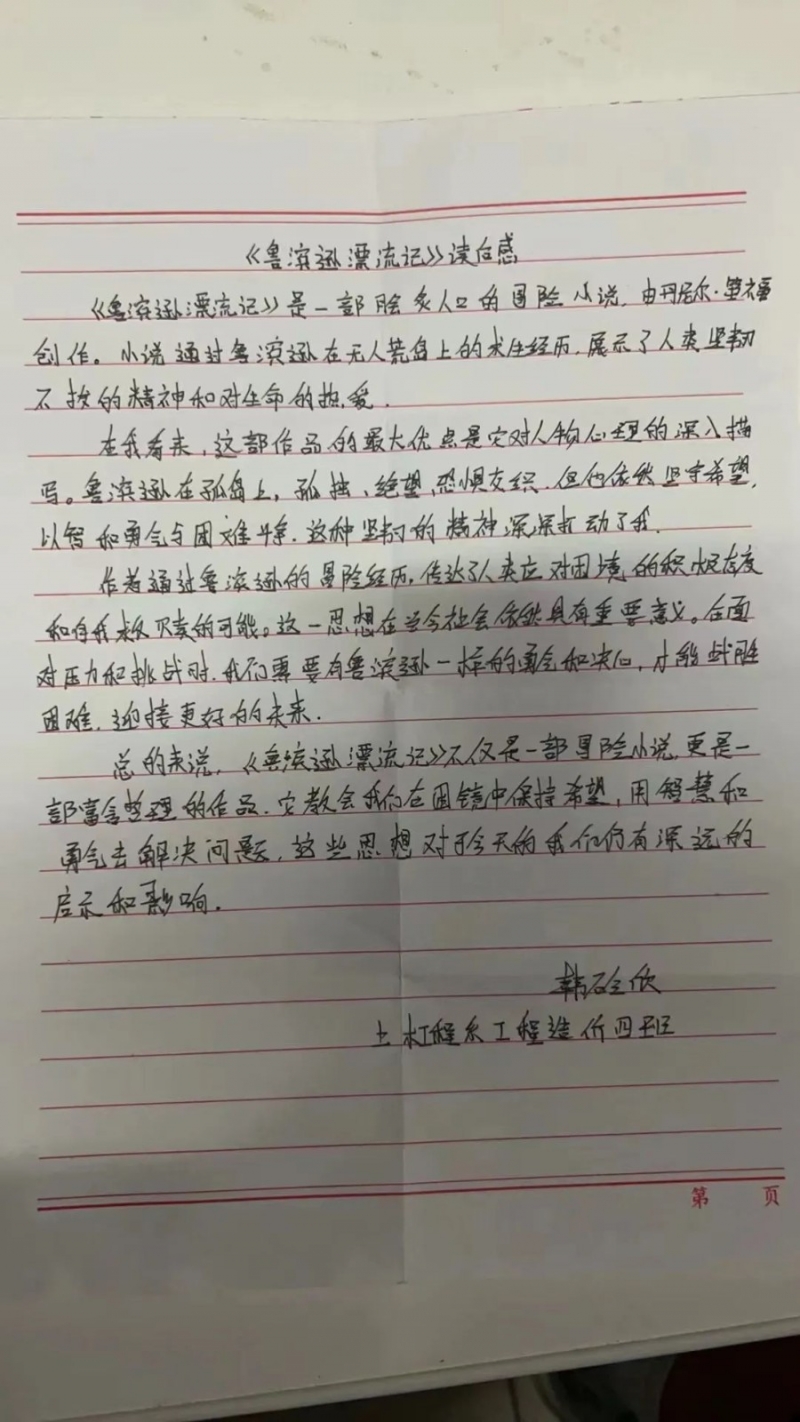 《鲁滨逊漂流记》读后感
《鲁滨逊漂流记》是一部脍炙人口的冒险小说,由丹尼尔·笛福
创作。小说通过鲁滨逊在无人荒岛上的求生经历,展示了人类坚韧
不拔的精神和对生命的热爱.
在我看来,这部作品的最大优点是它对人物心理的深入描
写。鲁滨逊在孤岛上,孤独、绝望、恐惧交织.但他依然坚守希望,
以智和勇气与困难斗争.这种坚韧的精神深深打动了我.
作者通过鲁滨逊的冒险经历,传达了人类应对困境的积极态度
和自我救赎的可能。这一思想在当今社会依然具有重要意义。在面
对压力和挑战时.我们需要有鲁滨逊一样的勇气和决心,才能战胜
困难.迎接更好的未来.
总的来说,《鲁滨逊漂流记》不仅是一部冒险小说.更是一
部富含哲理的作品.它教会我们在困镜中保持希望,用智慧和
勇气去解决问题,这些思想对于今天的我们仍有深远的
启示和影响.
韩欣
土木工程系工程造价四班
第 页